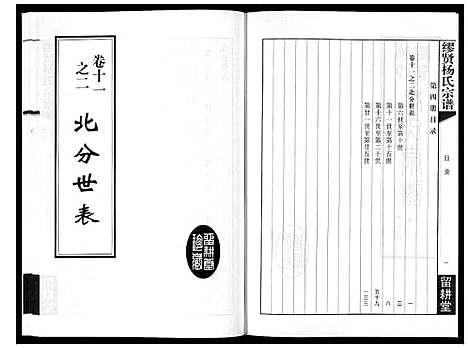 缪贤杨氏宗谱
目录
一
留耕堂
第四册目录
卷十一之二北分世表
第六世至第十世 一
第十一世至第十五世 三
第十六世至第二十世 八
第廿一世至第廿五世
卷十一之二
北分世表
留耕堂珍藏